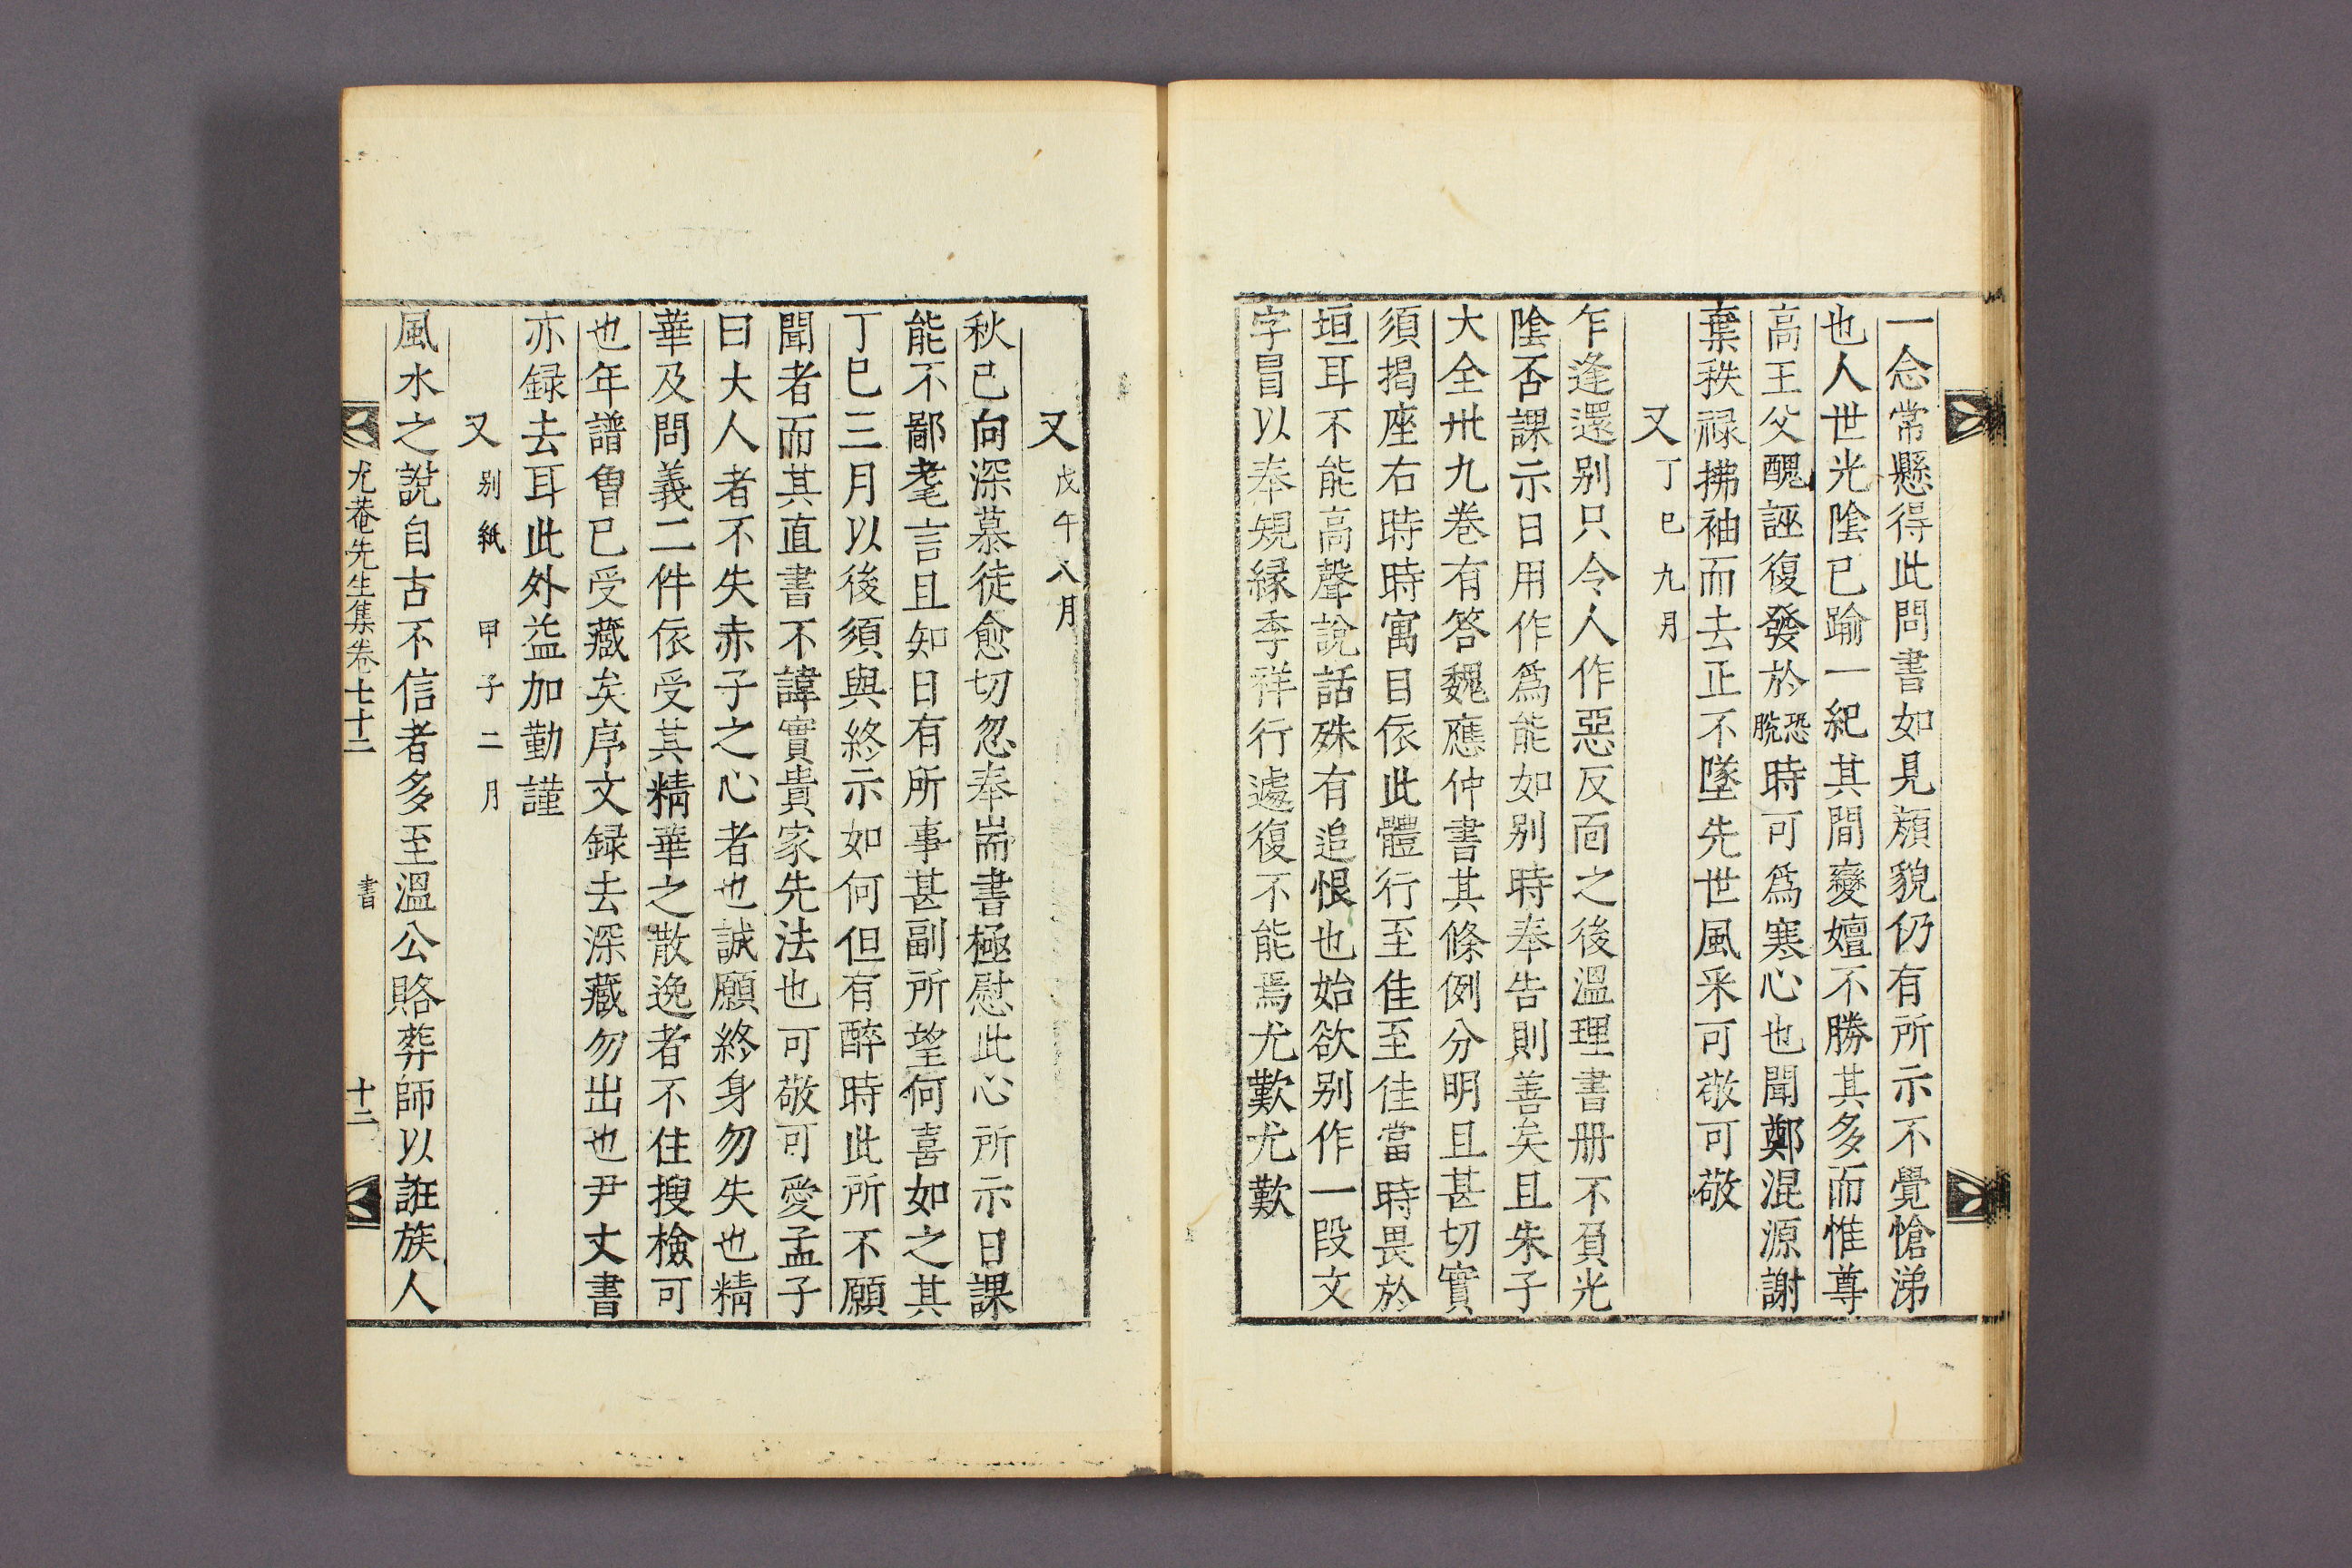 一念常懸得此問書如見顏貌仍有所示不覺愴涕
也人世光陰已踰一紀其間變嬗不勝其多而惟尊
高王父醜誣復發於恐脫時可爲寒心也聞鄭混源謝
棄秩祿拂袖而去正不墜先世風采可敬可敬
又丁巳九月
乍逢還別只令人作惡反面之後溫理書册不負光
陰否課示日用作爲能如別時奉告則善矣且朱子
大全卅九卷有答魏應仲書其條例分明且甚切實
須揭座右時時寓目依此體行至佳至佳當時畏於
垣耳不能高聲說話殊有追恨也始欲別作一段文
字冒以奉規緣季祥行遽復不能焉尤歎尤歎
又戊午八月
秋已向深慕徒愈切忽奉耑書極慰此心所示日課
能不鄙耄言且知日有所事甚副所望何喜如之其
丁巳三月以後須與終示如何但有醉時此所不願
聞者而其直書不諱實貴家先法也可敬可愛孟子
曰大人者不失赤子之心者也誠願終身勿失也精
華及問義二件依受其精華之散逸者不住搜檢可
也年譜曾已受藏矣序文録去深藏勿出也尹丈書
亦録去耳此外益加勤謹
又別紙 甲子二月
風水之說自古不信者多至溫公賂葬師以誑族人
尤菴先生集卷七十二 書 十二